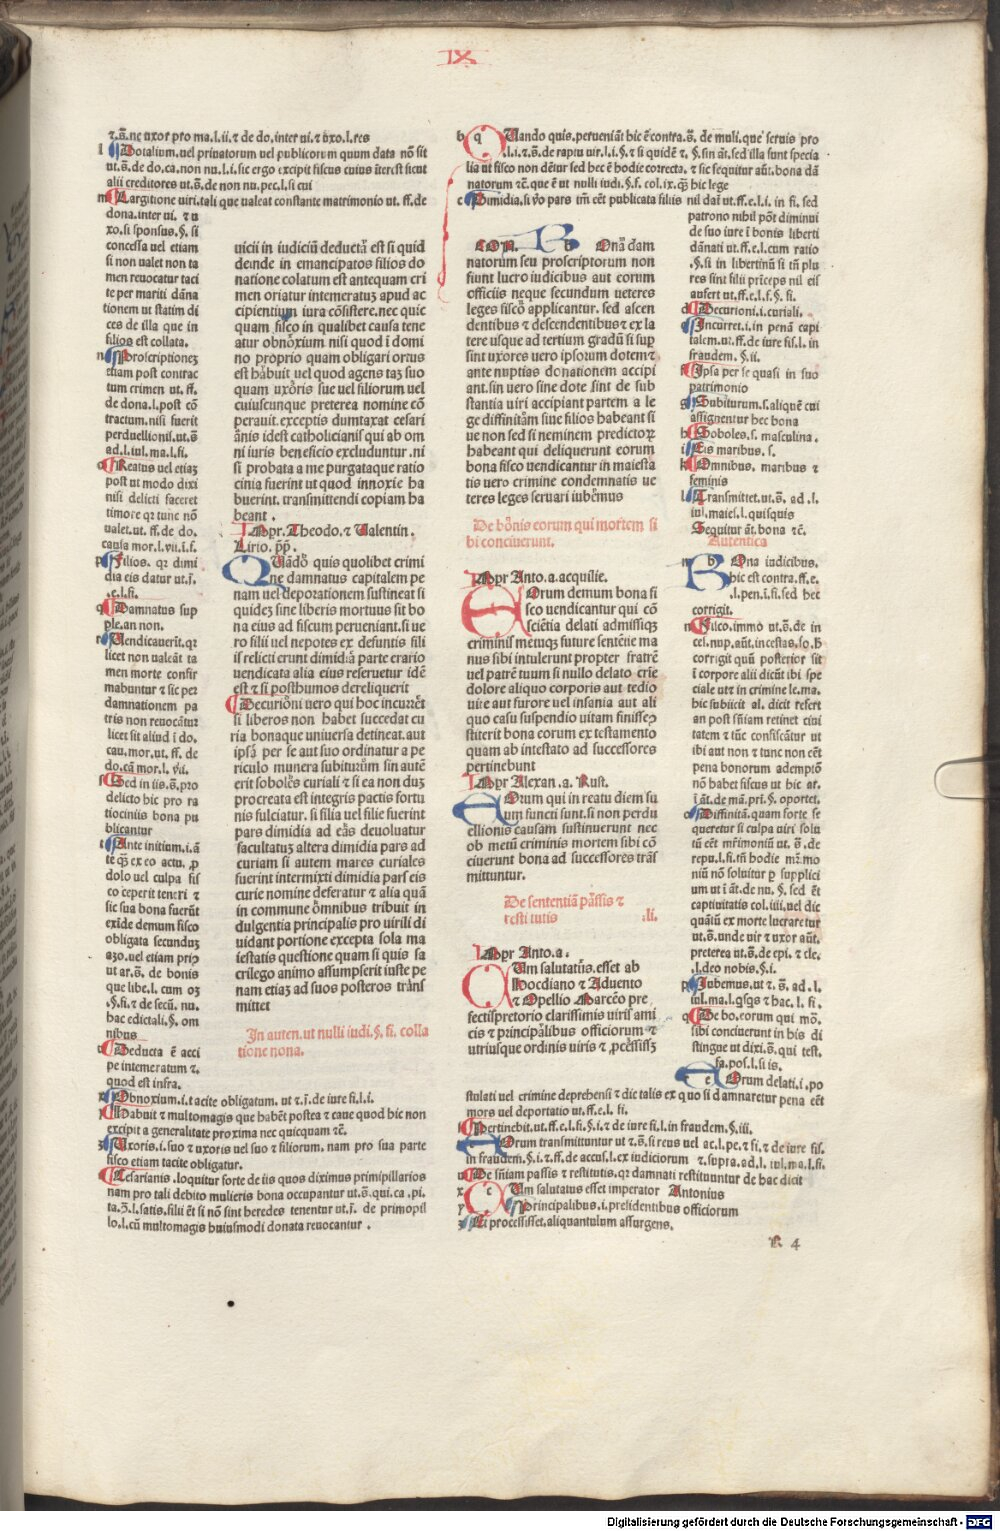 IX
⁊.s̄.ne uxor pro ma.l.ii.⁊ de do.inter ui.⁊ uxo.l.res
l Dotalium.uel priuatorum uel publicorum quum data nō sit
ut.s̄.de do.ca.non nu.l.i.sic ergo excipit fiscus cuius īterest sicut
alii creditores ut.s̄.de non nu.pec.l.si cui
m Largitione uiri.tali que ualeat constante matrimonio ut.ff.de
dona.inter ui. ⁊ u
xo.si sponsus.§. si
concessa uel etiam
si non ualet non ta
men reuocatur taci
te per mariti dāna
tionem ut statim di
ces de illa que in
filios est collata.
n Proscriptionez
etiam post contrac
tum crimen ut. ff.
de dona.l.post cō
tractum.nisi fuerit
perduellionis.ut.s̄
ad.l.iul.ma.l.fi.
o Reatus uel etiaz
post ut modo dixi
nisi delicti faceret
timore qz tunc nō
ualet.ut. ff. de do.
causa mor.l.vii.i.f.
p Filios. qz dimi
dia eis datur ut.ī.
.e.l.fi.
q Damnatus sup
ple.an non.
r Uendicauerit.qz
licet non ualeāt ta
men morte confir
mabuntur ⁊ sic per
damnationem pa
tris non reuocātur
licet sit aliud ī do.
cau.mor.ut. ff. de
do.cā mor.l. vii.
s Sed in iis.s̄.pro
delicto hic pro ra
tiociniis bona pu
blicantur
t Ante initium.i.ā
te qꝫ ex eo actu. ꝓ
dolo uel culpa fis
co ceperit teneri ⁊
sic sua bona fuerūt
exīde demum fisco
obligata secunduz
azo.uel etiam priꝰ
ut ar.s̄. de bonis
que libe.l. cum oz
.§.fi.⁊ de secū. nu.
hac edictali.§. om
nibus
u Deducta ē acci
pe intemeratum ⁊.
quod est infra.
x Obnoxium.i.tacite obligatum. ut ⁊.ī.de iure fi.l.i.
y Habuit ⁊ multomagis que habēt postea ⁊ caue quod hic non
excipit a generalitate proxima nec quicquam ⁊c̄.
z Uxoris.i.suo ⁊ uxoris uel suo ⁊ filiorum. nam pro sua parte
fisco etiam tacite obligatur.
Cesarianis .loquitur forte de iis quos diximus primipillarios
nam pro tali debito mulieris bona occupantur ut.s̄.qui.ca .pi.
ta.ꝫ.l.satis.filii ēt si nō sint heredes tenentur ut.ī. de primopil
lo.l.cū multomagis huiusmodi donata reuocantur .
uicii in iudiciū deductā est si quid
deinde in emancipatos filios do
natione colatum est antequam cri
men oriatur intemeratuz apud ac
cipientium iura cōsistere.nec quic
quam fisco in qualibet causa tene
atur obnoxium nisi quod ī domi
no proprio quam obligari ortus
est habuit uel quod agens taz suo
quam uxoris sue uel filiorum uel
cuiuscunque preterea nomine cō
perauit.exceptis dumtaxat cesari
anis idest catholicianis qui ab om
ni iuris beneficio excluduntur .ni
si probata a me purgataque ratio
cinia fuerint ut quod innoxie ha
buerint. transmittendi copiam ha
beant .
Impr. Theodo.⁊ Ualentin.
Lirio. p̄p̄.
QUādo quis quolibet crimi
ne damnatus capitalem pe
nam uel deporationem sustineat si
quidez sine liberis mortuus sit bo
na eius ad fiscum perueniant.si ue
ro filii uel nepotes ex defuntis fili
is relicti erunt dimidia parte erario
uendicata alia eius reseruetur idē
est ⁊ si posthumos dereliquerit
Decurioni uero qui hoc incurrēt
si liberos non habet succedat cu
ria bonaque uniuersa detineat.aut
ipsā per se aut suo ordinatur a pe
riculo munera subiturūm sin autē
erit soboles curiali ⁊ si ea non duz
procreata est integris pactis fortu
nis fulciatur. si filia uel filie fuerint
pars dimidia ad eas deuoluatur
facultatuz altera dimidia pars ad
curiam si autem mares curiales
fuerint intermixti dimidia pars eis
curie nomine deferatur ⁊ alia quā
in commune omnibus tribuit in
dulgentia principalis pro uirili di
uidant portione excepta sola ma
iestatis questione quam si quis sa
crilego animo assumpserit iuste pe
nam etiaz ad suos posteros trāns
mittet
In auten.ut nulli iudi.§. fi. colla
tione nona.
b q QUando quis.perueniāt hic ē contra.s̄. de muli.que seruis pro
.l.i.⁊.s̄.de raptu uir.l.i.§.⁊ si quidē ⁊. §.sin āt.sed illa sunt specia
lia ut fisco non dētur sed hec ē hodie correcta. ⁊ sic sequitur aūt.bona dā
natorum ⁊c̄.que ē ut nulli iudi.§.f. col.ix.qꝫ hic lege
c Dimidia.si v̄o pars tm̄ eēt publicata filiis nil daī ut.ff.e.l.i. in fi. sed
patrono nihil pōt diminui
de suo iure ī bonis liberti
dānati ut.ff.e.l.cum ratio
.§.si in libertinū si tn̄ plu
res sint filii prīceps nil eis
aufert ut.ff.e.l.f.§. fi.
d Decurioni.i.curiali.
e Incurret.i.in penā capi
talem.ut.ff.de iure fis.l. in
fraudem. §.ii.
f Ipsa per se quasi in suo
patrimonio
g Subiturum.s.aliquē cui
assignentur hec bona
h Soboles.s. masculina.
i Eis maribus. s.
k Omnibus. maribus ⁊
feminis
l Transmittet.ut.s̄. ad .l.
iul.maies.l. quisquis
Sequitur āt.bona ⁊c̄.
Autentica
m b BOna iudicibus.
hic est contra.ff.e.
.l.pen.ī.fi.sed hec
corrigit.
n Fisco.immo ut.s̄.de in
ces.nup.aūt.incestas.so.h
corrigit quū posterior sit
ī corpore alii dicūt ibi spe
ciale ut in crimine le.ma.
hic subiicit al. dicit refert
an post sn̄iam retinet ciui
tatem ⁊ tūc confiscātur ut
ibi aut non ⁊ tunc non eēt
pena bonorum ademptiō
nō habet fiscus ut hic ar.
ī āt.de mā.pri.§. oportet.
o Diffinitā.quam forte se
queretur si culpa uiri solu
tū eēt mr̄imoniū ut. s̄ .de
repu.l.fi.tn̄ hodie mr̄.mo
niū nō soluitur ꝑ supplici
um ut ī āt.de nu. §. sed ēt
captiuitatis col.iiii.uel dic
quātū ex morte lucraretur
ut.s̄.unde uir ⁊ uxor aūt.
preterea ut.s̄.de epi. ⁊ cle.
.l.deo nobis.§.i.
p Iubemus.ut ⁊. s̄. ad .l.
iul.ma.l.qsqs ⁊ hac.l. fi.
q De bo.eorum qui mō.
sibi conciuerunt in his di
stingue ut dixi.s̄.qui test.
fa.pos.l.si is.
e EOrum delati.i.po
COR. b BOnā dam
natorum seu proscriptorum non
fiunt lucro iudicibus aut eorum
officiis neque secundum ueteres
leges fisco applicantur. sed ascen
dentibus ⁊ descendentibus ⁊ ex la
tere usque ad tertium gradū si sup
sint uxores uero ipsozum dotem⁊
ante nuptias donationem accipi
ant.sin uero sine dote sint de sub
stantia uiri accipiant partem a le
ge diffinitam siue filios habeant si
ue non sed si neminem predictoꝝ
habeant qui deliquerunt eorum
bona fisco uendicantur in maiesta
tis uero crimine condemnatis ue
teres leges seruari iubemus
De bonis eorum qui mortem si
bi conciuerunt.
Impr Anto.a.acquilie.
EOrum demum bona fi
sco uendicantur qui cō
sciētia delati admissiqꝫ
criminis metuqꝫ future sentētie ma
nus sibi intulerunt propter fratrē
uel patrē tuum si nullo delato crīe
dolore aliquo corporis aut tedio
uite aut furore uel insania aut ali
quo casu suspendio uitam finisse
stiterit bona eorum ex testamento
quam ab intestato ad successores
pertinebunt
Impr Alexan .a. Rust.
EOrum qui in reatu diem su
um functi sunt.si non perdu
ellionis causam sustinuerunt nec
ob metū criminis mortem sibi cō
ciuerunt bona ad successores trās
mittuntur.
De sententiā passis ⁊
resti tutis .li.
Impr Anto.a.
CUm salutatus.esset ab
Hocdiano ⁊ Aduento
⁊ Opellio Marceo pre
fectis pretorio clarissimis uiris ami
cis ⁊ principalibus officiorum ⁊
utriusque ordinis uiris ⁊ ꝓcessissz
stulati uel crimine deprehensi ⁊ dic talis ex quo si damnaretur pena eēt
mors uel deportatio ut.ff.e.l. fi.
s Pertinebit.ut.ff.e.l.fi.§.i.⁊ de iure fi.l.in fraudem.§.iii.
t EOrum transmittuntur ut ⁊.s̄.si reus uel ac.l.pe.⁊ fi.⁊ de iure fis.
in fraudem.§.i.⁊.ff.de accus.l.ex iudiciorum ⁊.supra.ad.l. iul.ma.l.fi.
u De sn̄iam passis ⁊ restitutis.qz damnati restituuntur de hac dicit
x c CUm salutatus esset imperator Antonius
y Principalibus.i.presidentibus officiorum
z Et processisset.aliquantulum assurgens.
R 4
Digitalisierung gefördert durch die Deutsche Forschungsgemeinschaft - DFG